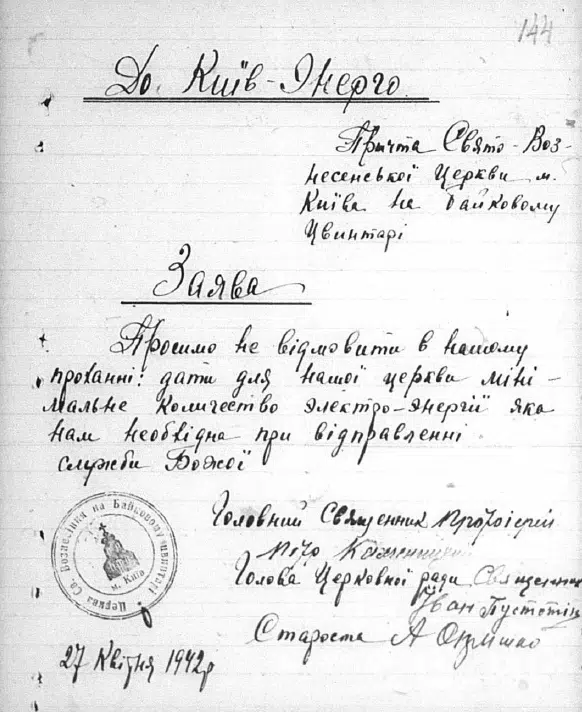 144
До Київ-Энерго
Причта Свято-Воз-
несенської Церкви м.
Київа на Байковому
Цвинтарі
Заява
Просимо не відмовити в нашому
проханні: дати для нашої церкви міні-
мальне количество электро-энергії яка
нам необхідна при відправленні
служби Божої
Головний Священник Протоієрей
Голова Церковної ради Священник
Іван
Староста А
27 Квітня 1942р
Церква Св. Вознесіння на Байковому цвинтарі
м. Київ